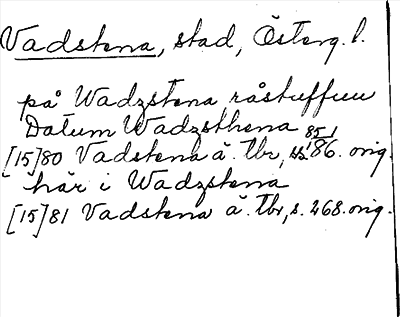 Vadstena, stad, Österg. l.
på Wadzstena råstuffuu
Datum Wadzsthena
[15]80 Vadstena ä. Tbr, s. 85, 186. orig.
här i Wadzstena
[15]81 Vadstena ä. Tbr, s. 268. orig.